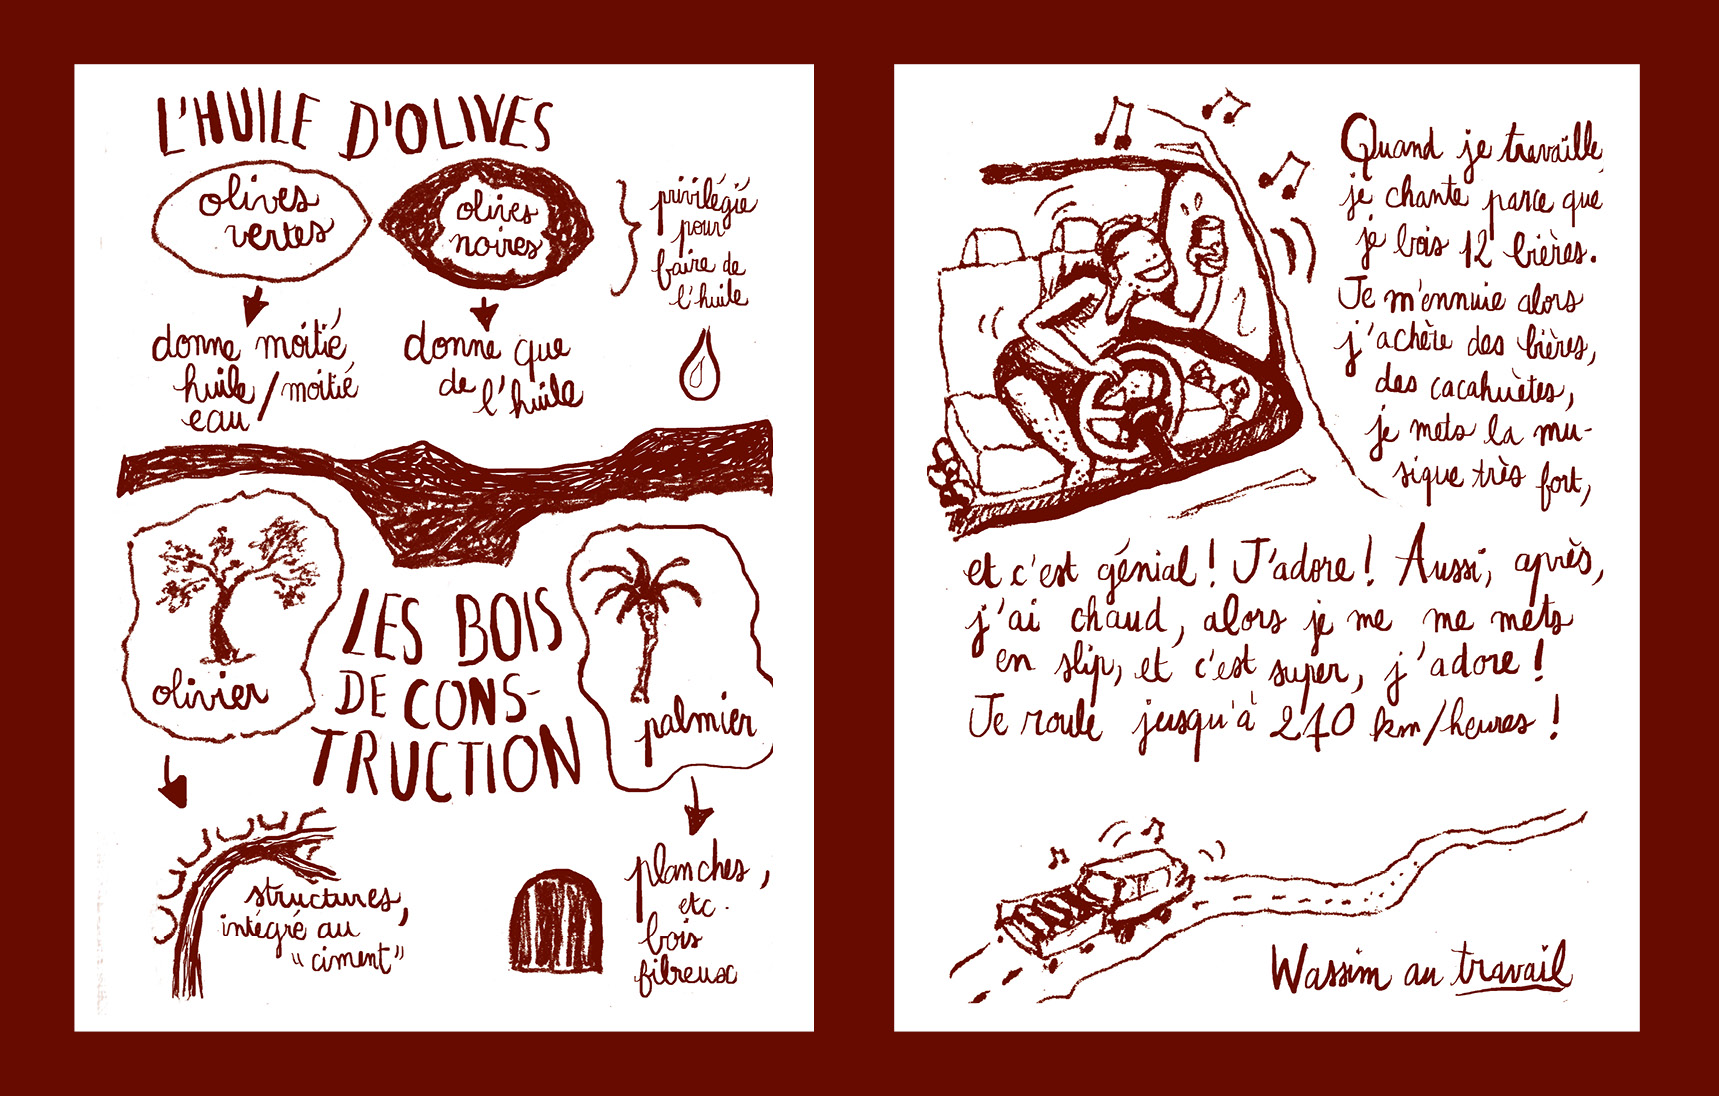 L'HUILE D'OLIVES
olives
vertes
olives
noires
privilégié
pour
faire de
l'huile
donne moitié
huile / moitié
eau
donne que
de l'huile
olivier
LES BOIS
DE CONS-
TRUCTION
palmier
structures,
intégré au
"ciment"
planches,
etc.
bois
fibreux
Quand je travaille,
je chante parce que
je bois 12 bières.
Je m'ennuie alors
j'achète des bières,
des cacahuètes,
je mets la mu-
sique très fort,
et c'est génial ! J'adore ! Aussi, après,
j'ai chaud, alors je me me mets
en slip, et c'est super, j'adore !
Je roule jusqu'à 270 km/heures !
Wassim au travail